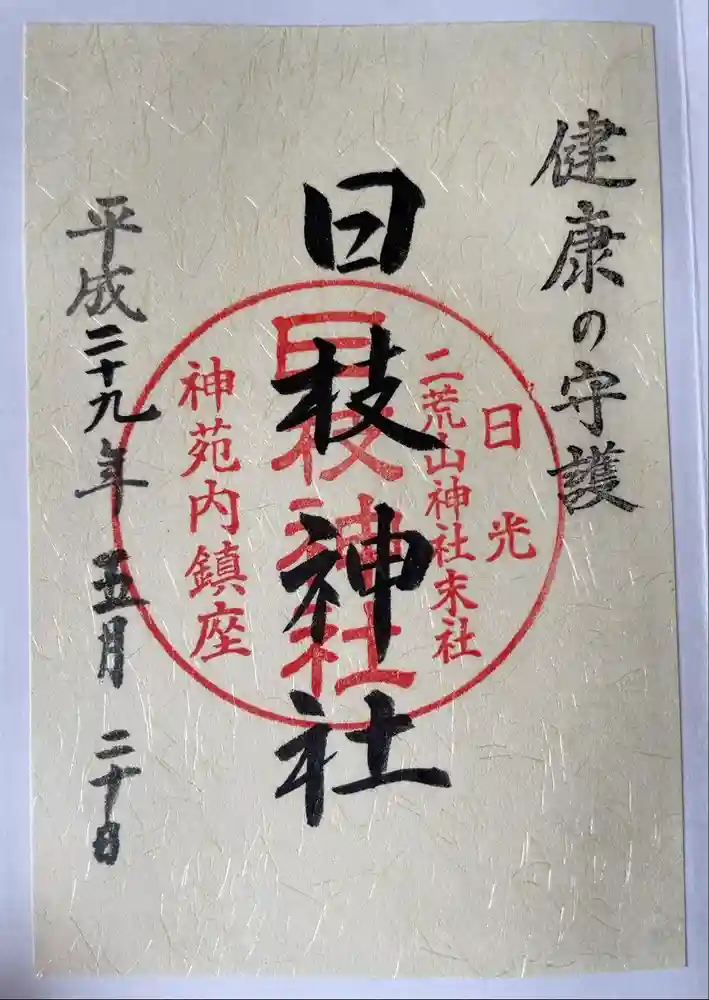 健康の守護
日光
二荒山神社末社
日枝神社
日枝神社
神苑内鎮座
平成二十九年五月二十日